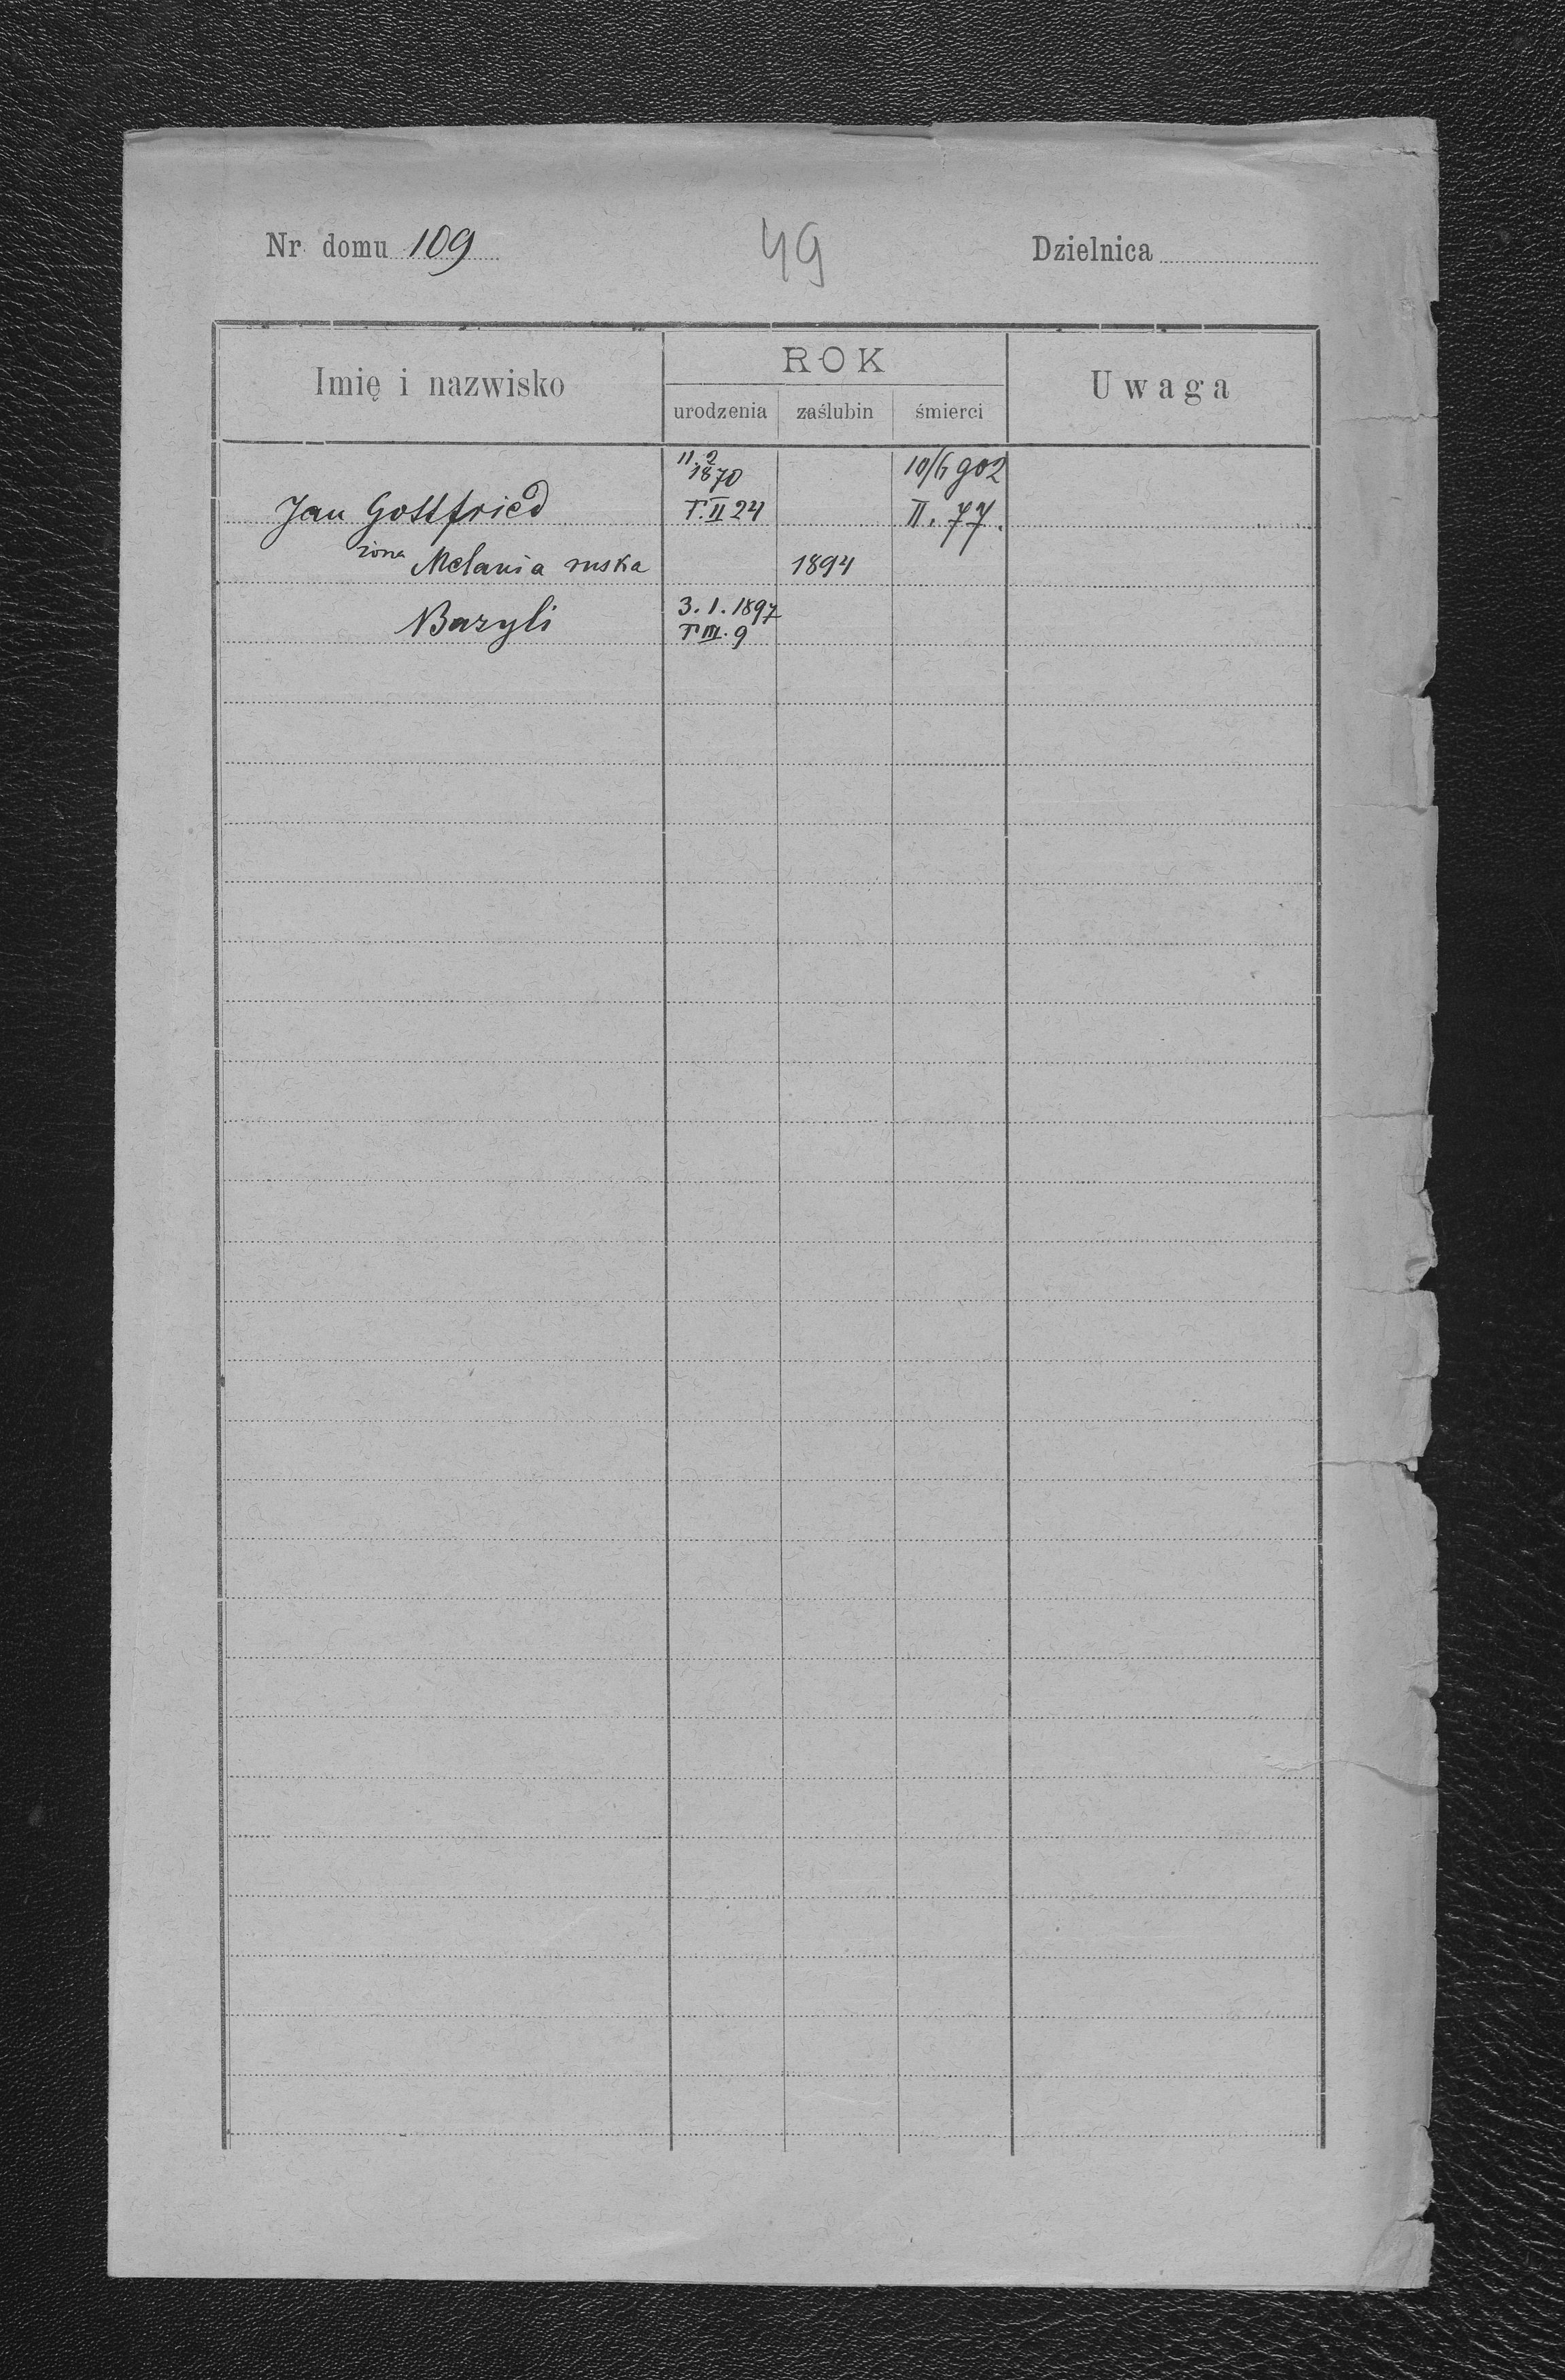 Nr domu 109 49 Dzielnica
Imię i nazwisko ROK Uwaga
urodzenia zaślubin śmierci
11.2 1870 10/6 902
Jan Gottfried T.II 24 II. 77.
żona Melania ruska 1894
Bazyli 3.1.1897
T III. 9